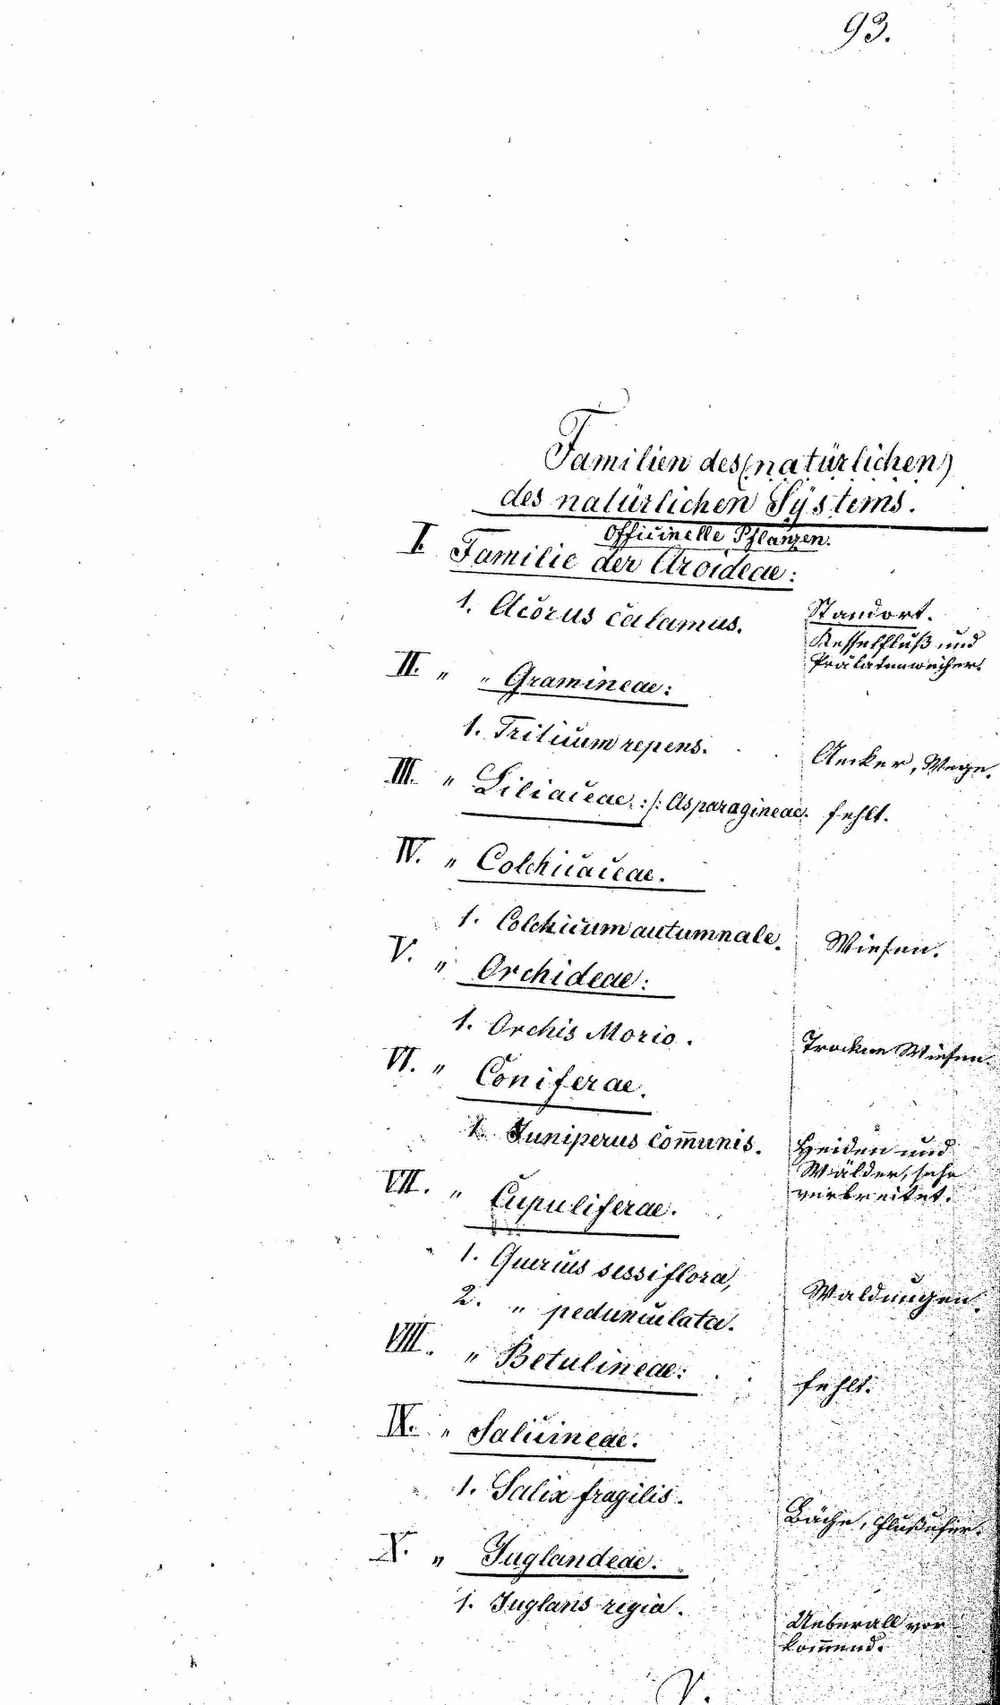 93.
Familien des (natürlichen)
des natürlichen Systems.
Officinelle Pflanzen.
I. Familie der Aroideae:
1. Acorus calamus.
Standort.
Kesselfluß und
Prälatenweiher.
II. " " Gramineae:
1. Triticum repens.
Aecker, Wege.
III. " Liliaceae :/: Asparagineae. fehlt.
IV. " Colchicaceae.
1. Colchicum autumnale. Wiesen.
V. " Orchideae:
1. Orchis Morio. Trockne Wiesen.
VI. " Coniferae.
1. Juniperus com̅unis. Heiden und
Wälder, sehr
verbreitet.
VII. " Cupuliferae.
1. Quercus sessiflora,
2. " pedunculata. Waldungen.
VIII. " Betulineae: fehlt.
IX. " Salicineae.
1. Salix fragilis. Bäche, Flußufer.
X. " Juglandeae.
1. Juglans regia. Ueberall vor
kom̅end.
V.